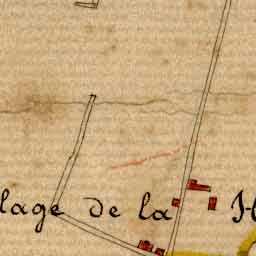 lage de la H